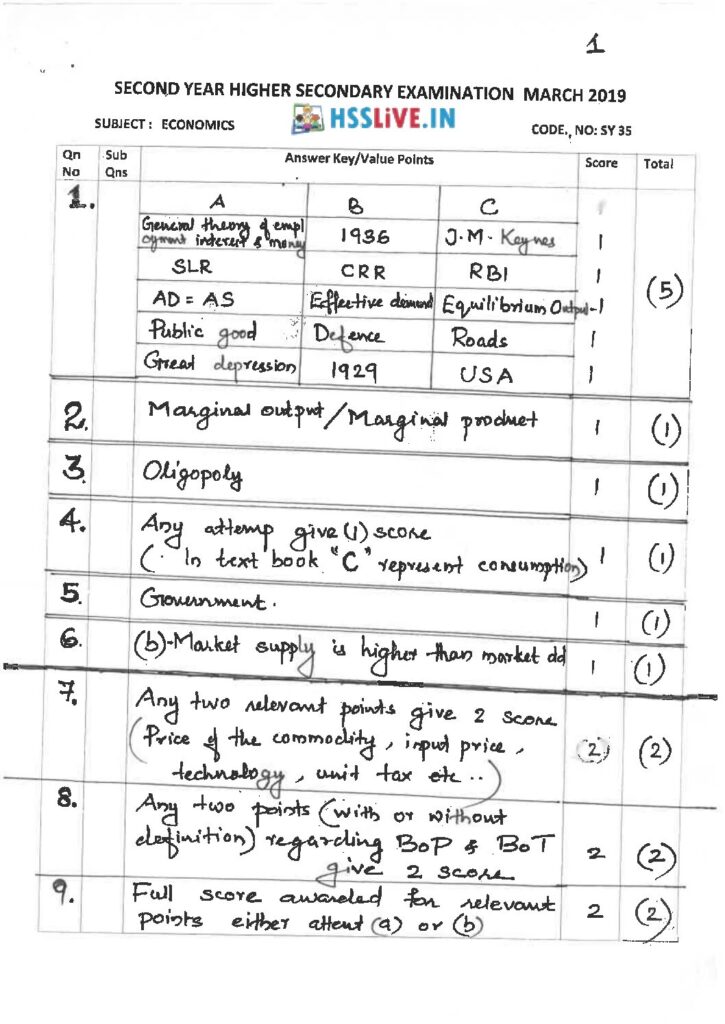 1
SECOND YEAR HIGHER SECONDARY EXAMINATION MARCH 2019
HSSLiVE.IN
SUBJECT : ECONOMICS
CODE., NO: SY 35
Qn No Sub Qns Answer Key/Value Points Score Total
1. A B C
General theory of empl
oyment interest & money 1936 J.M. Keynes 1
SLR CRR RBI 1
(5)
AD = AS Effective demand Equilibrium Output -1
Public good Defence Roads 1
Great depression 1929 USA 1
2. Marginal output/Marginal product 1 (1)
3. Oligopoly 1 (1)
4. Any attemp give (1) score
(. In text book "C" represent consumption) 1 (1)
5. Government. 1 (1)
6. (b)-Market supply is higher than market dd 1 (1)
7. Any two relevant points give 2 score
(Price of the commodity, input price, (2) (2)
technology, unit tax etc..)
8. Any two points (with or without
definition) regarding BoP & BoT 2 (2)
give 2 score
9. Full score awarded for relevant
points either attent (a) or (b) 2 (2)